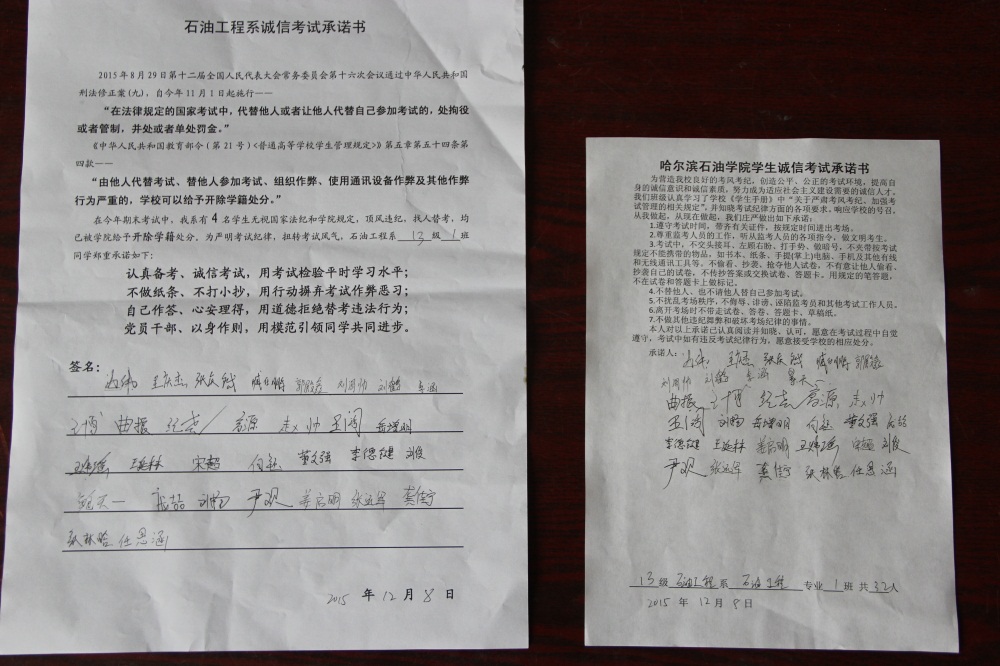 石油工程系诚信考试承诺书
2015年8月29日第十二届全国人民代表大会常务委员会第十六次会议通过中华人民共和国
刑法修正案(九)，自今年11月1日起施行——
“在法律规定的国家考试中，代替他人或者让他人代替自己参加考试的，处拘役
或者管制，并处或者单处罚金。”
《中华人民共和国教育部令(第21号)<普通高等学校学生管理规定>》第五章第五十四条第
四款——
“由他人代替考试、替他人参加考试、组织作弊、使用通讯设备作弊及其他作弊
行为严重的，学校可以给予开除学籍处分。”
在今年期末考试中，我系有4名学生无视国家法纪和学院规定，顶风违纪，找人替考，均
已被学院给予开除学籍处分。为严明考试纪律，扭转考试风气，石油工程系 13 级 1 班
同学郑重承诺如下：
认真备考、诚信考试，用考试检验平时学习水平；
不做纸条、不打小抄，用行动摒弃考试作弊恶习；
自己作答、心安理得，用道德拒绝替考违法行为；
党员干部、以身作则，用模范引领同学共同进步。
签名：
王博 曲振 高源 赵帅 岳增明
王延林 宋超 董文强 李德健 刘俊
尹观 姜启明 张远军 龚傲宇
张林晗 任思涵
2015 年 12 月 8 日
哈尔滨石油学院学生诚信考试承诺书
为营造我校良好的考风考纪，创造公平、公正的考试环境，提高自
身的诚信意识和诚信素质，努力成为适应社会主义建设需要的诚信人才。
我们班级认真学习了学校《学生手册》中“关于严肃考风考纪，加强考
试管理的相关规定”，并知晓考试纪律方面的各项要求。响应学校的号召，
从我做起，从现在做起，我们庄严做出如下承诺：
1.遵守考试时间，带齐有关证件，按规定时间进出考场。
2.尊重监考人员的工作，听从监考人员的各项指令，做文明考生。
3.考试中，不交头接耳、左顾右盼、打手势、做暗号，不夹带按考试
规定不能携带的物品，如书本、纸条、手提(掌上)电脑、手机及其他有线
和无线通讯工具等，不偷看、抄袭、抢夺他人试卷，不有意让他人偷看、
抄袭自己的试卷，不传抄答案或交换试卷、答题卡。用规定的笔答题，
不在试卷和答题卡上做标记。
4.不替他人、也不请他人替自己参加考试。
5.不扰乱考场秩序，不侮辱、诽谤、诬陷监考员和其他考试工作人员。
6.离开考场时不带走试卷、答卷、答题卡、草稿纸。
7.不做其他违纪舞弊和破坏考场纪律的事情。
本人对以上承诺已认真阅读并知晓、认可，愿意在考试过程中自觉
遵守，考试中如有违反考试纪律行为，愿意接受学校的相应处分。
承诺人：
曲振 王博 高源 赵帅
岳增明 董文强
李德健 王延林 姜启明 宋超 刘俊
尹观 张远军 龚傲宇 张林晗 任思涵
13 级 石油工程 系 石油工程 专业 1 班 共 32 人
2015 年 12 月 8 日